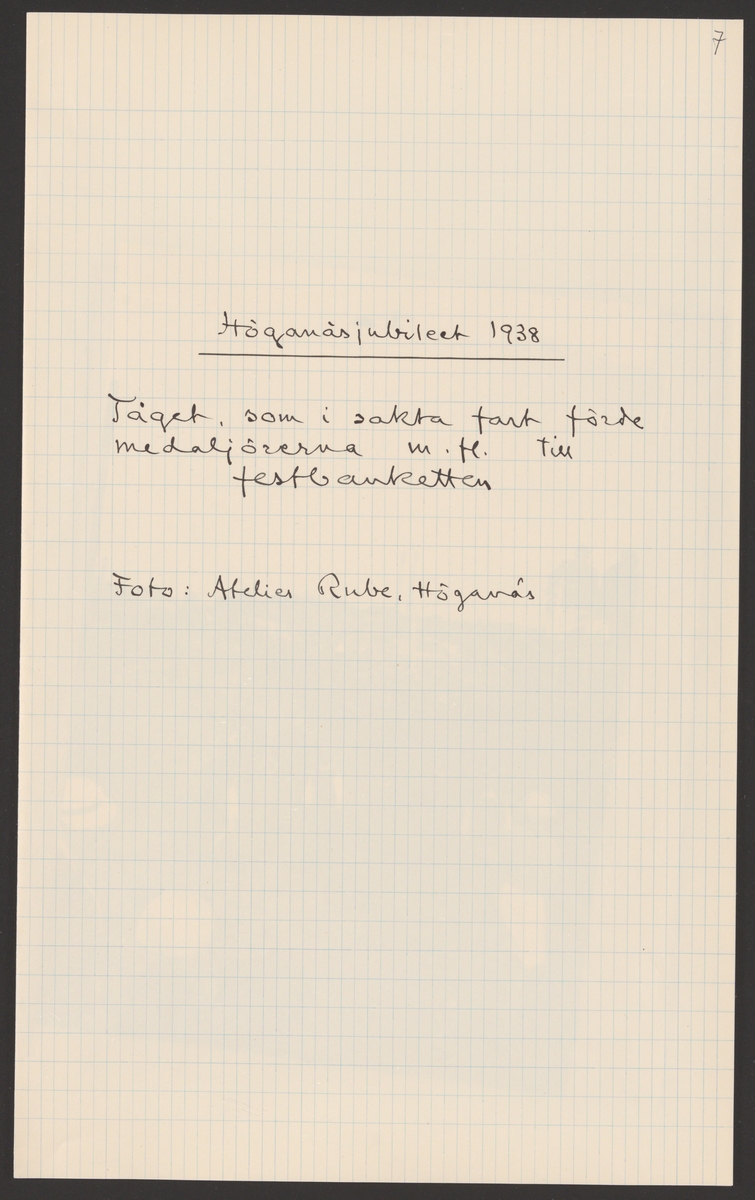 7
Höganäsjubileet 1938
Tåget, som i sakta fart förde
medaljörerna m.fl. till
festbanketten
Foto: Atelier Rube, Höganäs